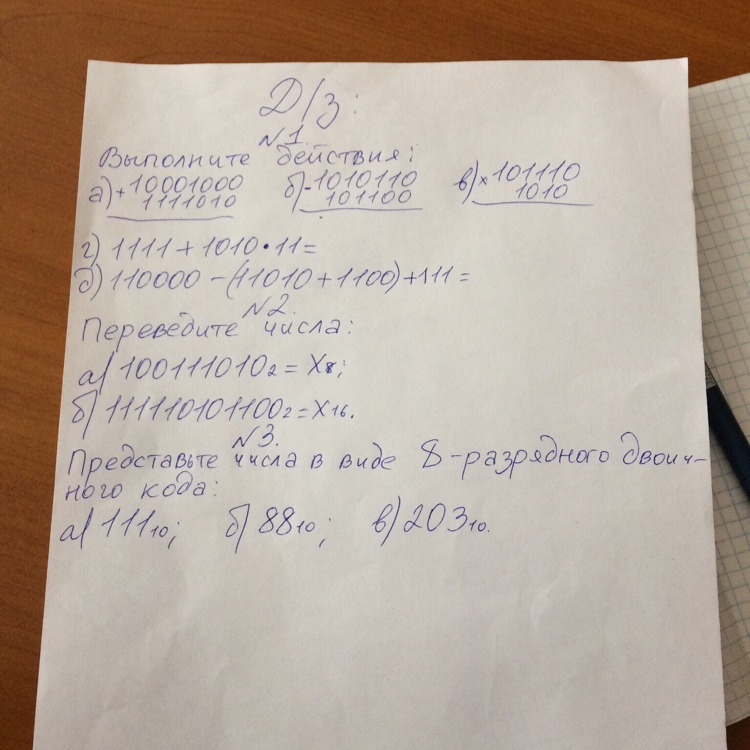 Д/з:
№1.
Выполните действия:
а) + 10001000 б) - 1010110 в) × 101110
1111010 101100 1010
г) 1111 + 1010 • 11 =
д) 110000 - (11010 + 1100) + 111 =
№2.
Переведите числа:
а) 100111010₂ = X₈;
б) 111110101100₂ = X₁₆.
№3.
Представьте числа в виде 8-разрядного двоич-
ного кода:
а) 111₁₀; б) 88₁₀; в) 203₁₀.